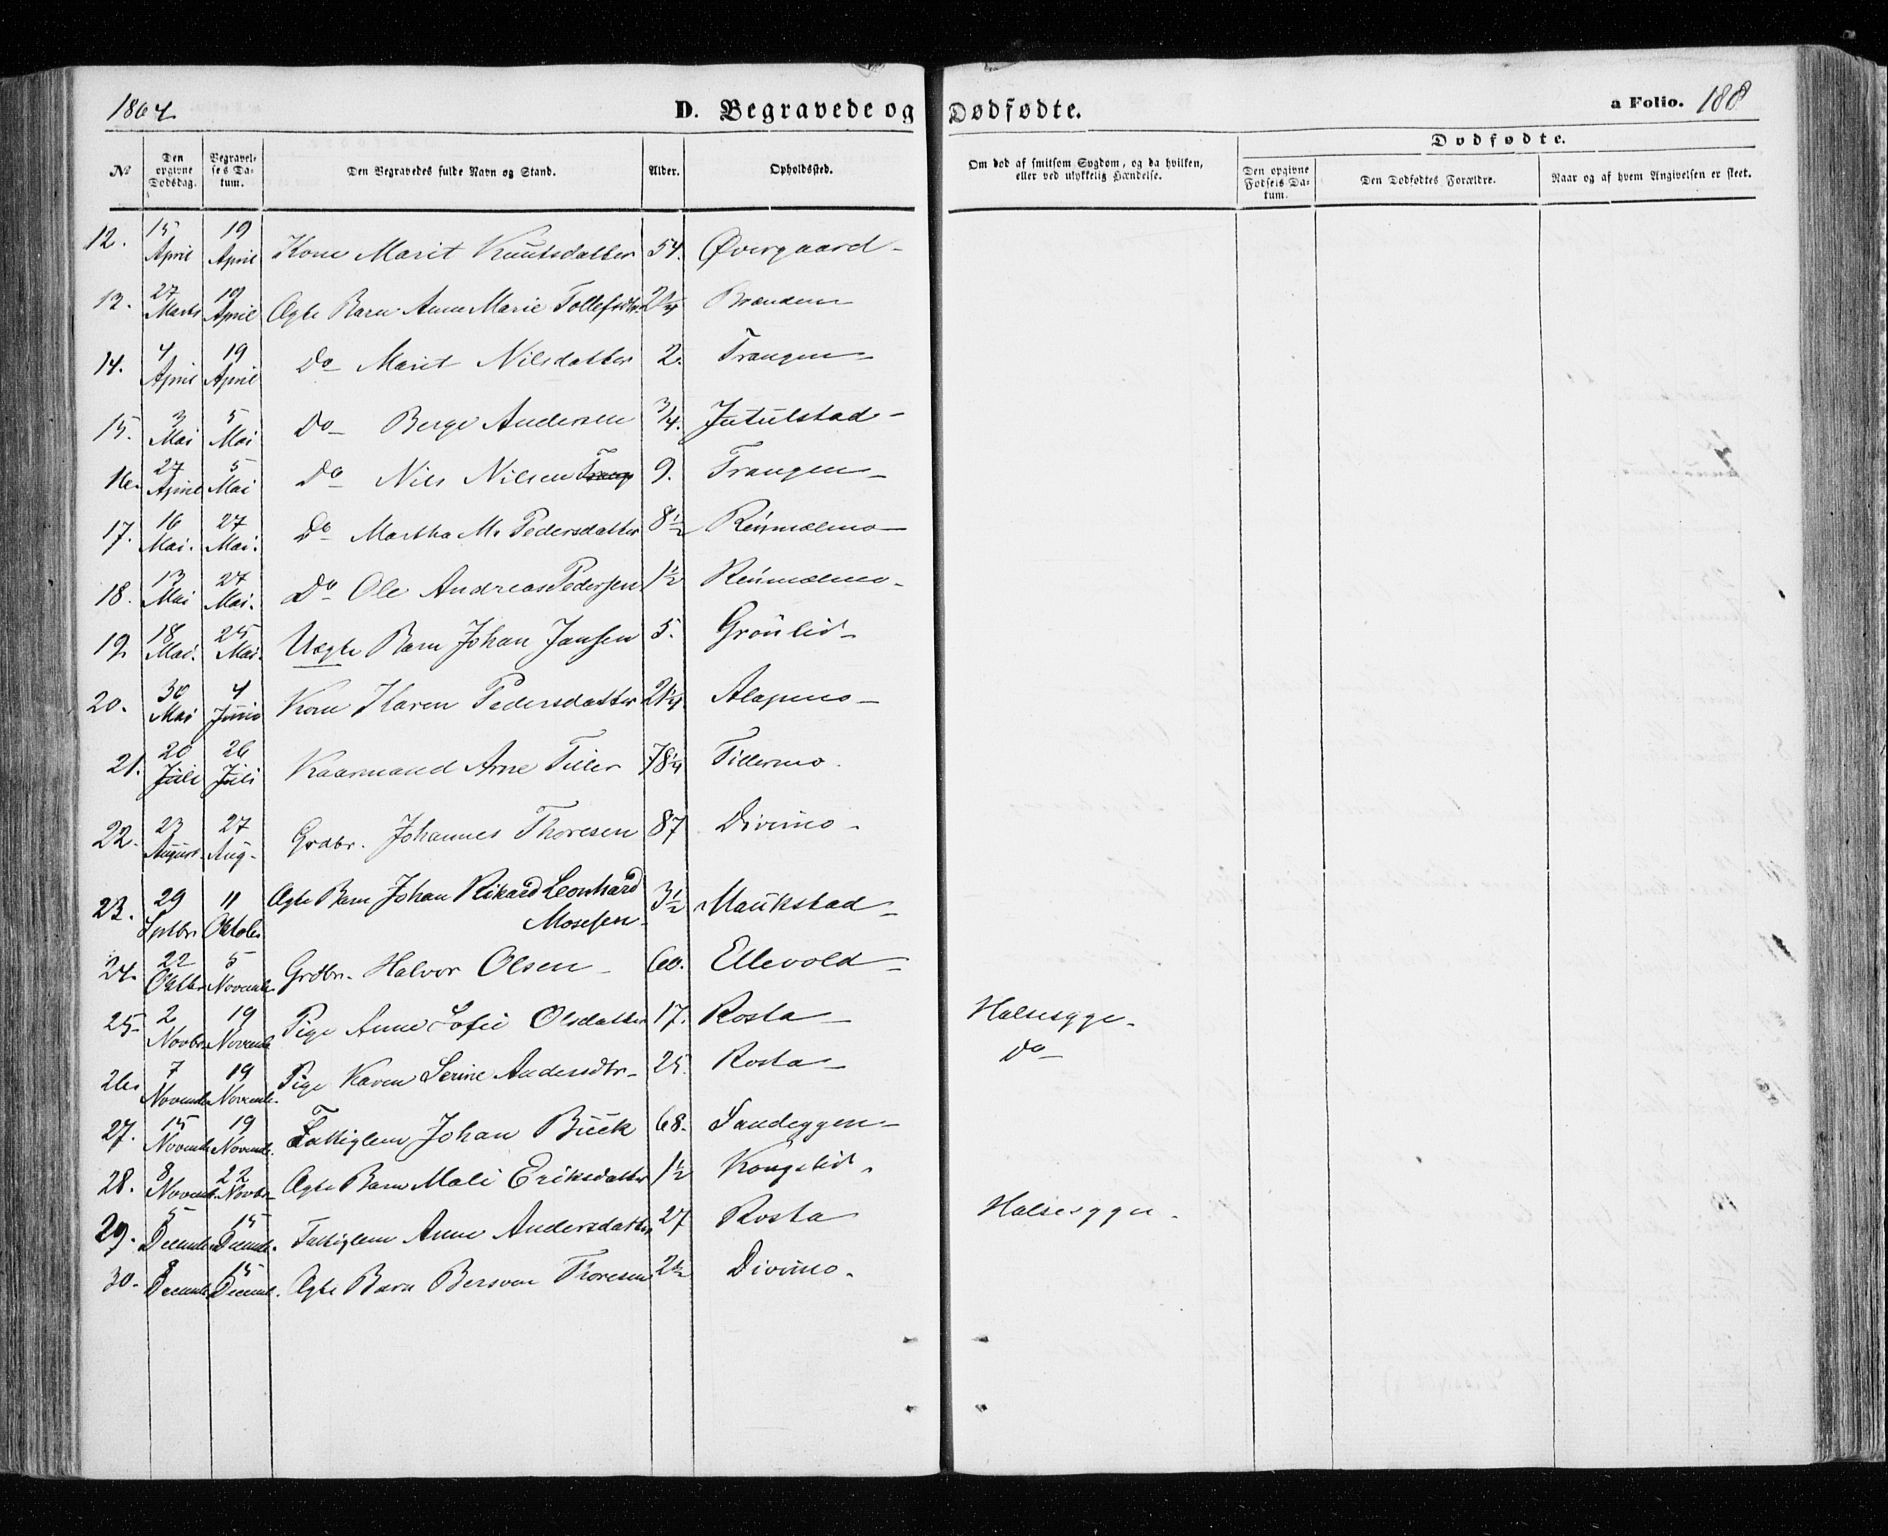 1864.
D. Begravede og Dødfødte.
a Folio. 188
No
Den opgivne Dødsdag.
Begravelses Datum.
Den Begravedes fulde Navn og Stand.
Alder.
Opholdssted.
Om død af smitsom Sygdom, og da hvilken, eller ved ulykkelig Hændelse.
Dødfødte.
Den opgivne Fødsels Datum.
Den Dødfødtes Forældre.
Naar og af hvem Angivelsen er skeet.
12. 15 April 19 April Kone Marit Knutsdatter 54. Øvergaard
13. 27 Marts 19 April Ægte Barn Anne Marie Tollefsdtr. 2¼ Brandmo
14. 4 April 19 April Do Marit Nilsdatter 2. Trangen
15. 3 Mai 5 Mai Do Berge Andersen ¾. Jutulstad
16. 27 April 5 Mai Do Nils Nilsen 9. Trangen
17. 16 Mai. 27 Mai. Do Martha M. Pedersdatter 8½ Rünnælmo
18. 13 Mai 27 Mai. Do Ole Andreas Pedersen 1½ Rünnælmo
19 18 Mai. 25 Mai. Uægte Barn Johan Jansen 5. Grönlid
20. 30 Mai 4 Junio Kone Karen Pedersdatter 21¼ Alapmo
21. 20 Juli 26 Juli Kaarmand Arne Tiller 78¼ Tillermo.
22. 23 August. 27 Aug. Grdbr. Johannes Thoresen 87 Divimo
23. 29 Septbr 11 Oktober Ægte Barn Johan Rikard Leonhard Mosesen 3½ Maukstad
24. 22 Oktbr 5 Novemb. Grdbr. Halvor Olsen 60. Ellevold
25 2 Novbr. 19 Novemb. Pige Anne Sofie Olsdatter 17. Rosta Halsesyge
26. 7 Novembr 19 Novemb. Pige Karen Serine Andersdtr 25. Rosta Do
27. 15 Novemb. 19 Novemb. Fattiglem Johan Buck 68. Sandeggen
28. 8 Novemb. 22 Novbr. Ægte Barn Mali Eriksdatter 1½ Kongslid
29. 5 Decembr 15 Decemb. Fattiglem Anne Andersdatter 27 Rosta Halsesyge
30. 8 Decemb. 15 Decemb. Ægte Barn Bersven Thoresen 2½ Divimo.